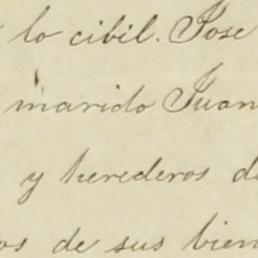 lo cibil. Jose
marido Juan
y herederos de
os de sus bien